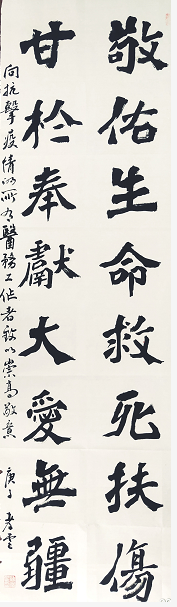 敬佑生命救死扶傷
甘於奉獻大愛無疆
向抗擊疫情的所有醫務工作者致以崇高敬意
庚子